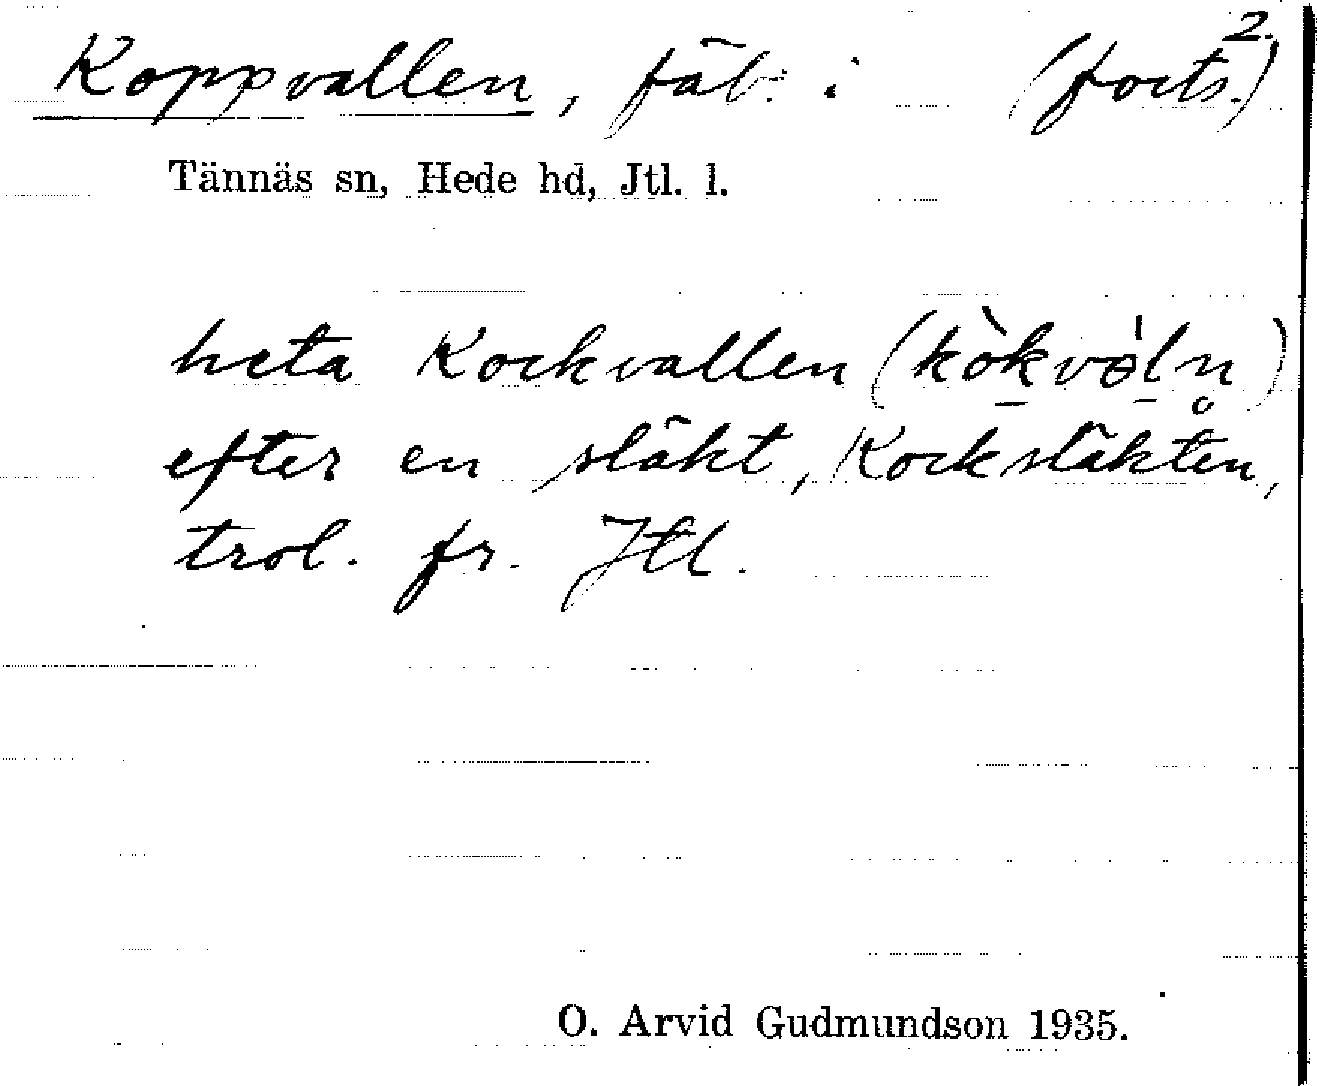 2.
Koppvallen, fäb. i (forts.)
Tännäs sn, Hede hd, Jtl. l.
heta Kockvallen (kòkvə̀ln̥)
efter en släkt, Kocksläkten,
trol. fr. Jtl.
O. Arvid Gudmundson 1935.